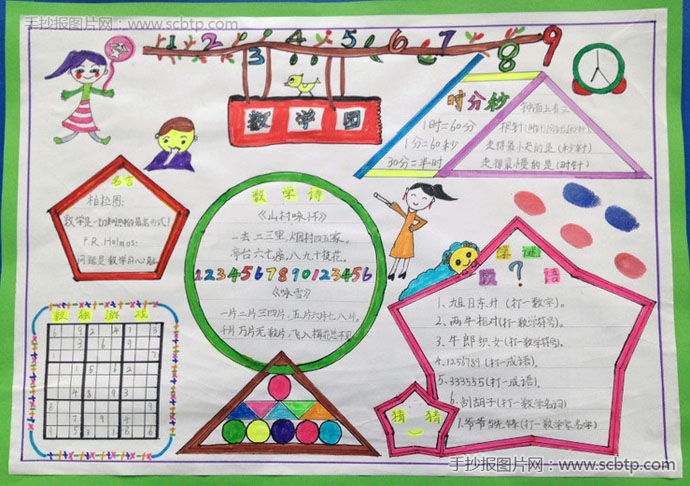 手抄报图片网:www.scbtp.com
1 2 3 4 5 6 7 8 9
数学园
时分秒
1时=60分
1分=60秒
30分=半时
走得最小的是(秒针)
走得最慢的是(时针)
名言
柏拉图:
数学是一切知识中的最高形式!
P.R. Halmos:
问题是数学的心脏
数学诗
《山村咏怀》
一去二三里,烟村四五家,
亭台六七座,八九十枝花。
1234567890123456
《咏雪》
一片二片三四片,五片六片七八片。
千片万片无数片,飞入梅花总不见
数独游戏
谜
数?语
1、旭日东升(打一数字)。
2、两牛相对(打一数学符号)。
3、牛郎织女(打一数学符号)。
4、1256789(打一成语)。
5、333555(打一成语)。
6、刮胡子(打一数学名词)
猜猜
手抄报图片网:www.scbtp.com